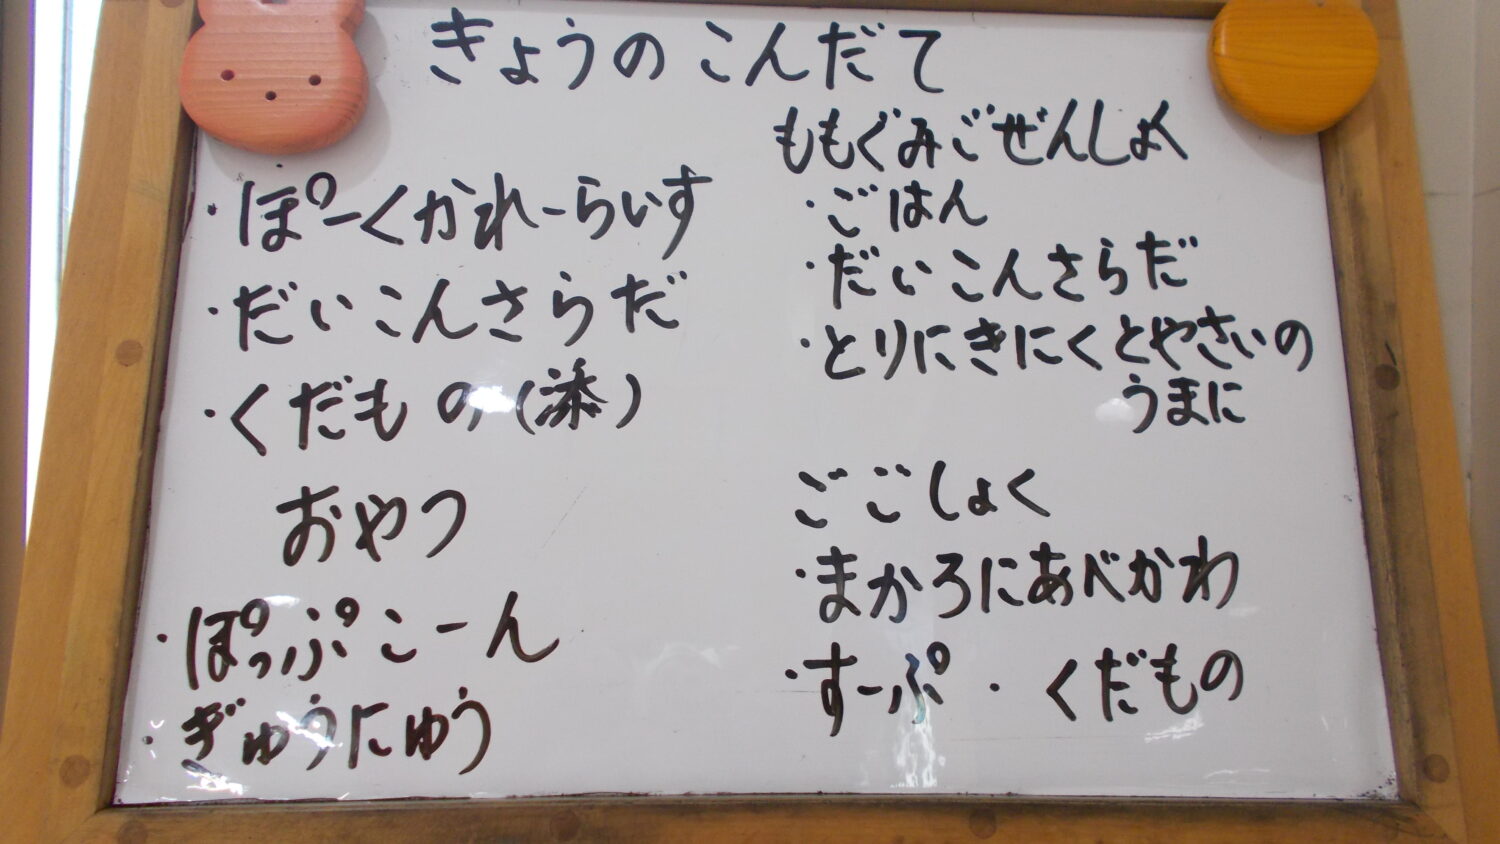 きょうのこんだて
・ぽーくかれーらいす
・だいこんさらだ
・くだもの(添)
おやつ
・ぽっぷこーん
・ぎゅうにゅう
ももぐみごぜんしょく
・ごはん
・だいこんさらだ
・とりにきにくとやさいの
うまに
ごごしょく
・まかろにあべかわ
・すーぷ・くだもの